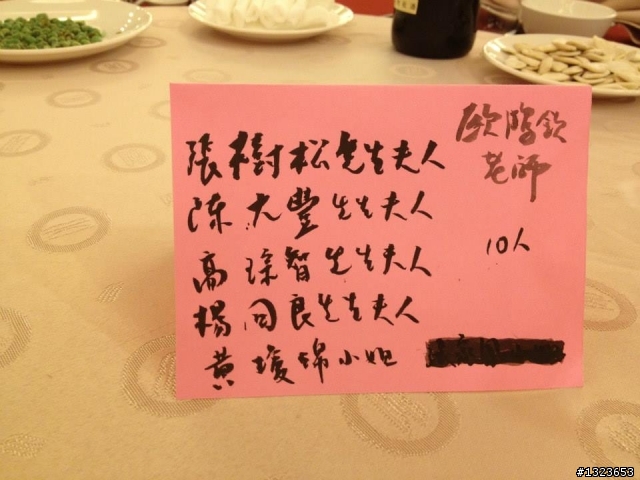 張樹松先生夫人
陳大豐先生夫人
高琮智先生夫人
楊回良先生夫人
黃瓊錦小姐
歐陽欽
老師
10人
#1323653